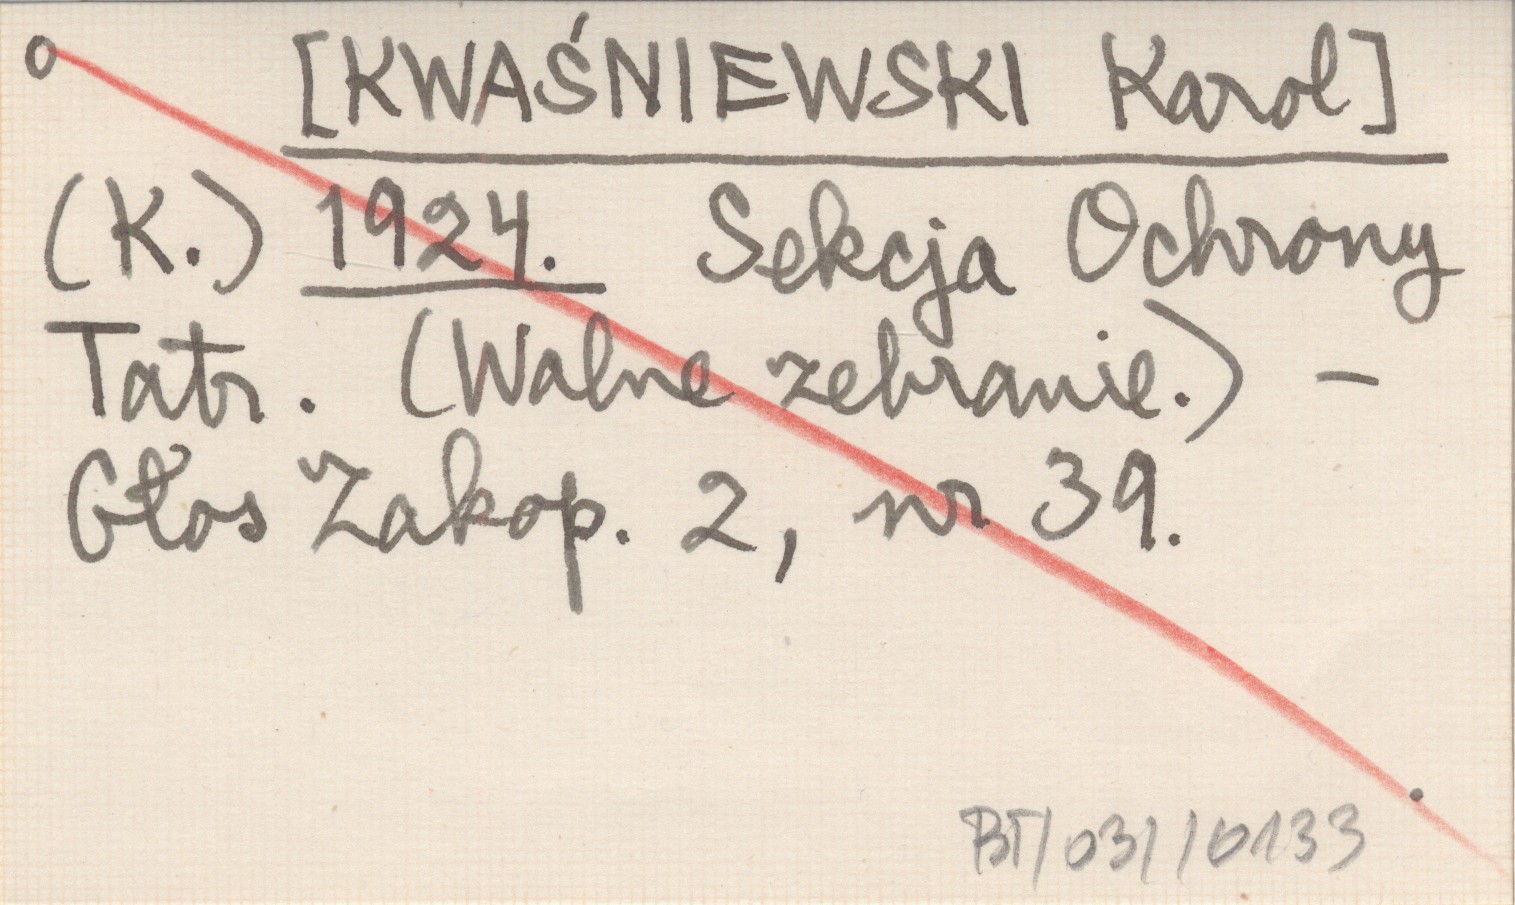 [KWAŚNIEWSKI Karol]
(K.) 1924. Sekcja Ochrony
Tatr. (Walne zebranie.) –
Głos Zakop. 2, nr 39.
BT/031/0133